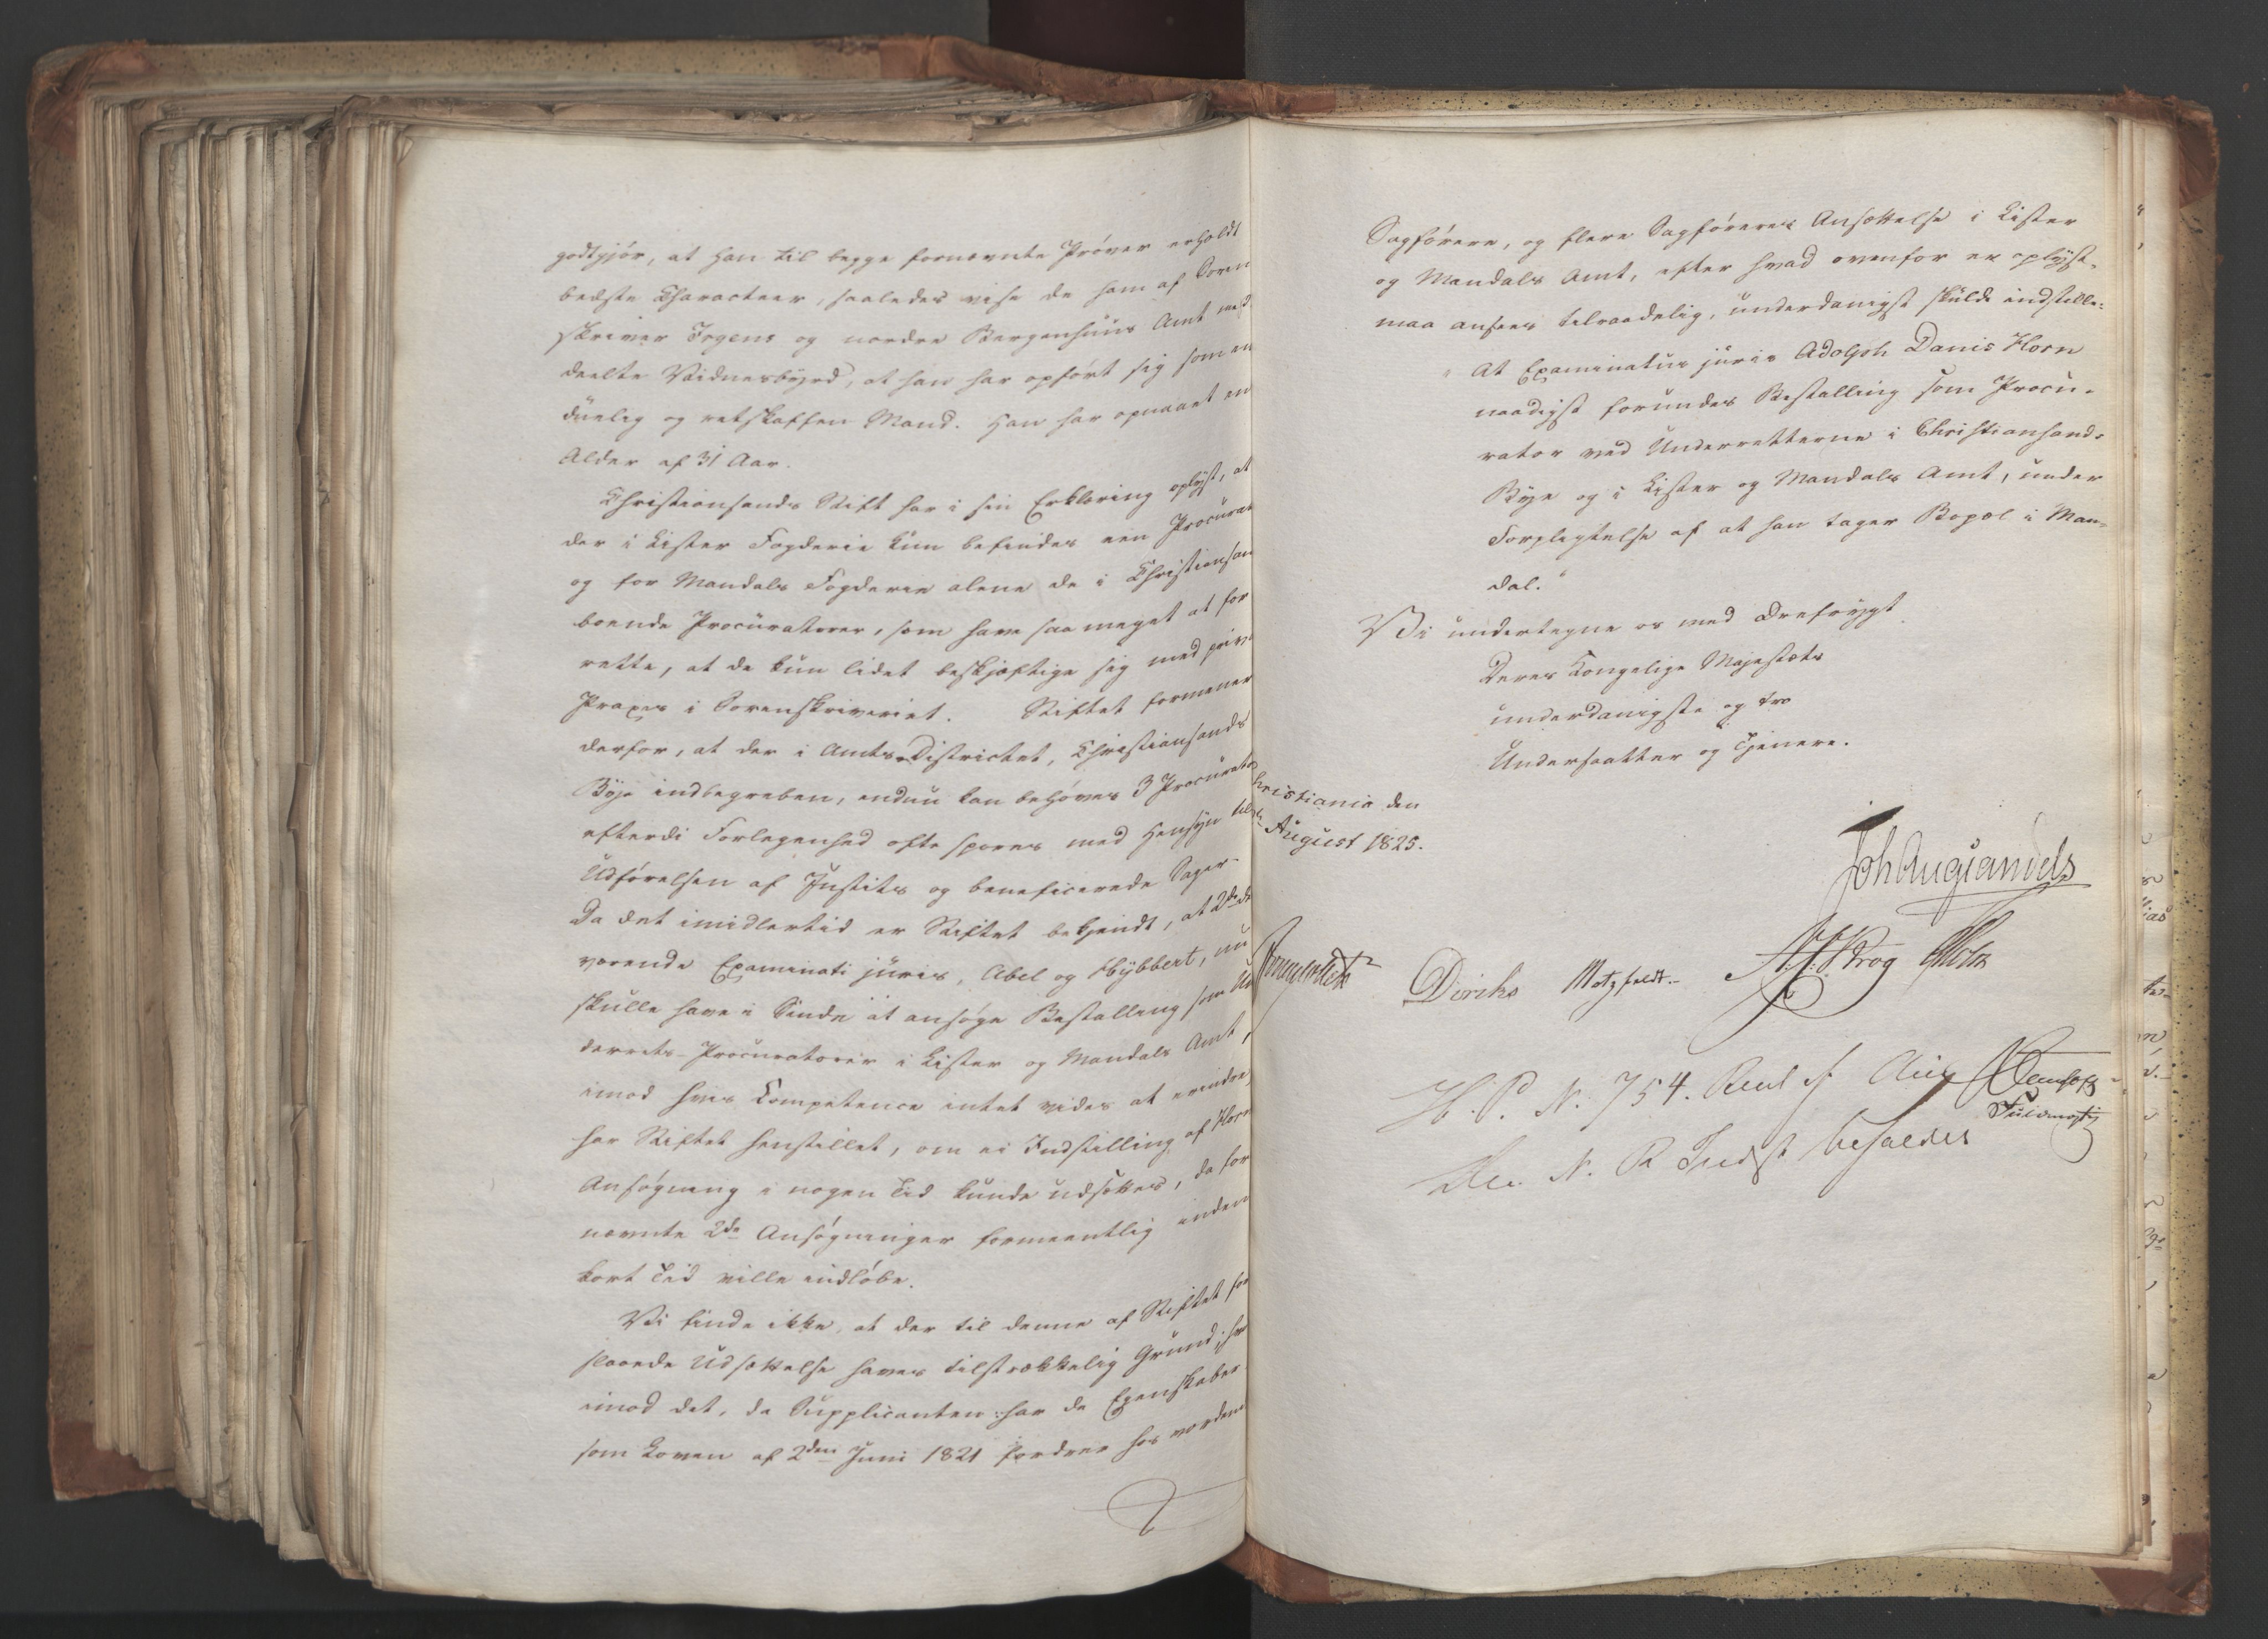 godtgjør, at han til begge fornævnte Prøver erholdt
bedste Characteer, saaledes vise de ham af Soren
skriver Irgens og nordre Bergenhuus Amt med
deelte Vidnesbyrd, at han har opført sig som en
duelig og retskaffen Mand. Han har opnaaet en
Alder af 31 Aar.
Christiansands Stift har i sin Erklæring oplyst, at
der i Lister Fogderie kun befindes een Procurat
og for Mandals Fogderie alene de i Christiansan
boende Procuratorer, som have saa meget at for
rette, at de kun lidet beskjæftige sig med priv
Praxis i Sorenskriveriet. Stiftet formener
derfor, at der i Amts-Districtet, Christiansands
Bye indbegreben, endnu kan behøves 3 Procurato
efterdi Forlegenhed ofte spores med Hensyn til
Udførelsen af Justits og beneficerede Sager.
Da det imidlertid er Stiftet bekjendt, at 2de de
værende Examinati juris, Abel og Hybbert, nu
skulle have i Sinde at ansøge Bestalling som Un
derrets-Procuratorer i Lister og Mandals Amt,
imod hvis Competence intet vides at erindre,
har Stiftet henstillet, om ei Indstilling af Horn
Ansøgning i nogen Tid kunde udsættes, da for
nævnte 2de Ansøgninger formeentlig inden
kort Tid ville indløbe.
Vi finde ikke, at der til denne af Stiftet for
slaaede Udsættelse haves tilstrækkelig Grund; hvor
imod det, da Supplicanten har de Egenskaber
som Loven af 2den Juni 1821 fordrer hos vordend
Sagførere, og flere Sagføreres Ansættelse i Lister
og Mandals Amt, efter hvad ovenfor er oplyst,
maa ansees tilraadelig, underdanigst skulde indstille:
"At Examinatus juris Adolph Danis Horn
naadigst forundes Bestalling som Procu-
rator ved Underretterne i Christiansands
Bye og i Lister og Mandals Amt, under
Forpligtelse af at han tager Bopæl i Man-
dal."
Vi undertegne os med Ærefrygt
Deres Kongelige Majestæts
underdanigste og tro
Undersaatter og Tjenere.
hristiania den
August 1825.
Joh Aug Sandels
Sommerhielm Diriks Motzfeldt. Krog Holst
H. P. N. 754. Aug
Fuldmægtig
N. R Indst behaldes